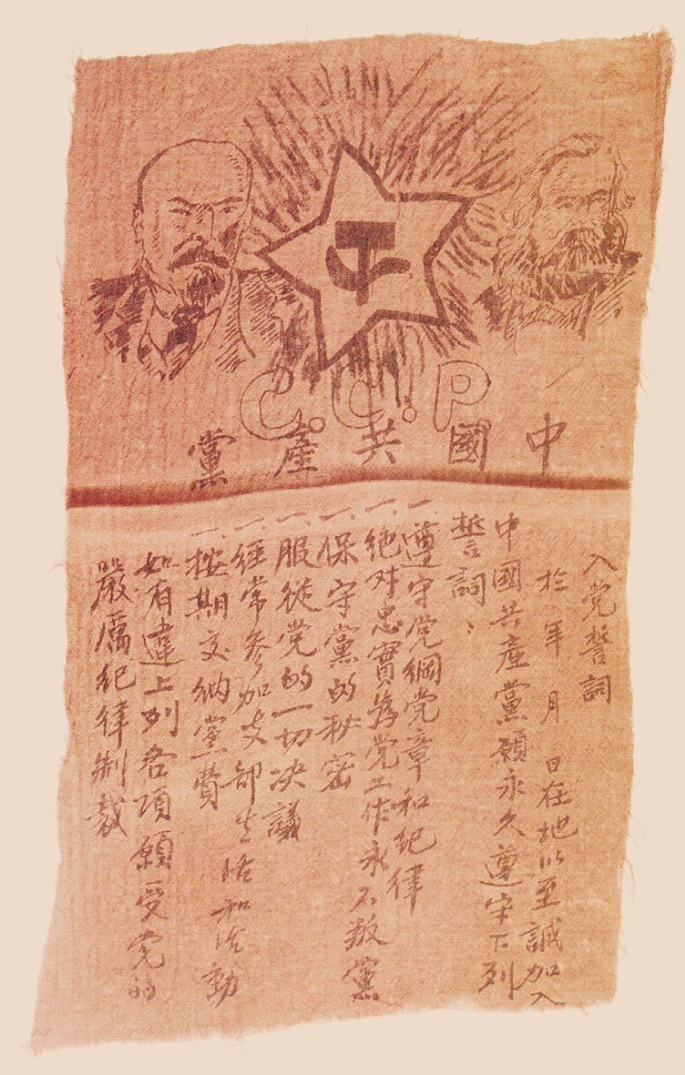 C.C.P
中國共產黨
入党誓詞
於 年 月 日在地以至誠加入
中國共產黨願永久遵守下列
誓詞：
一、遵守党綱党章和纪律
一、绝对忠實為党工作永不叛黨
一、保守黨的秘密
一、服從党的一切决議
一、经常参加支部生活和活動
一、按期交納黨費
如有違上列各項願受党的
嚴厲纪律制裁